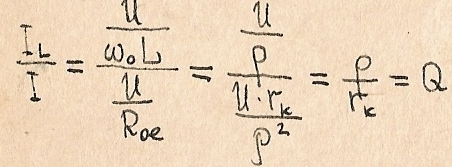 I_L / I = (U / ω₀L) / (U / R_oe) = (U / ρ) / (U · r_k / ρ²) = ρ / r_k = Q